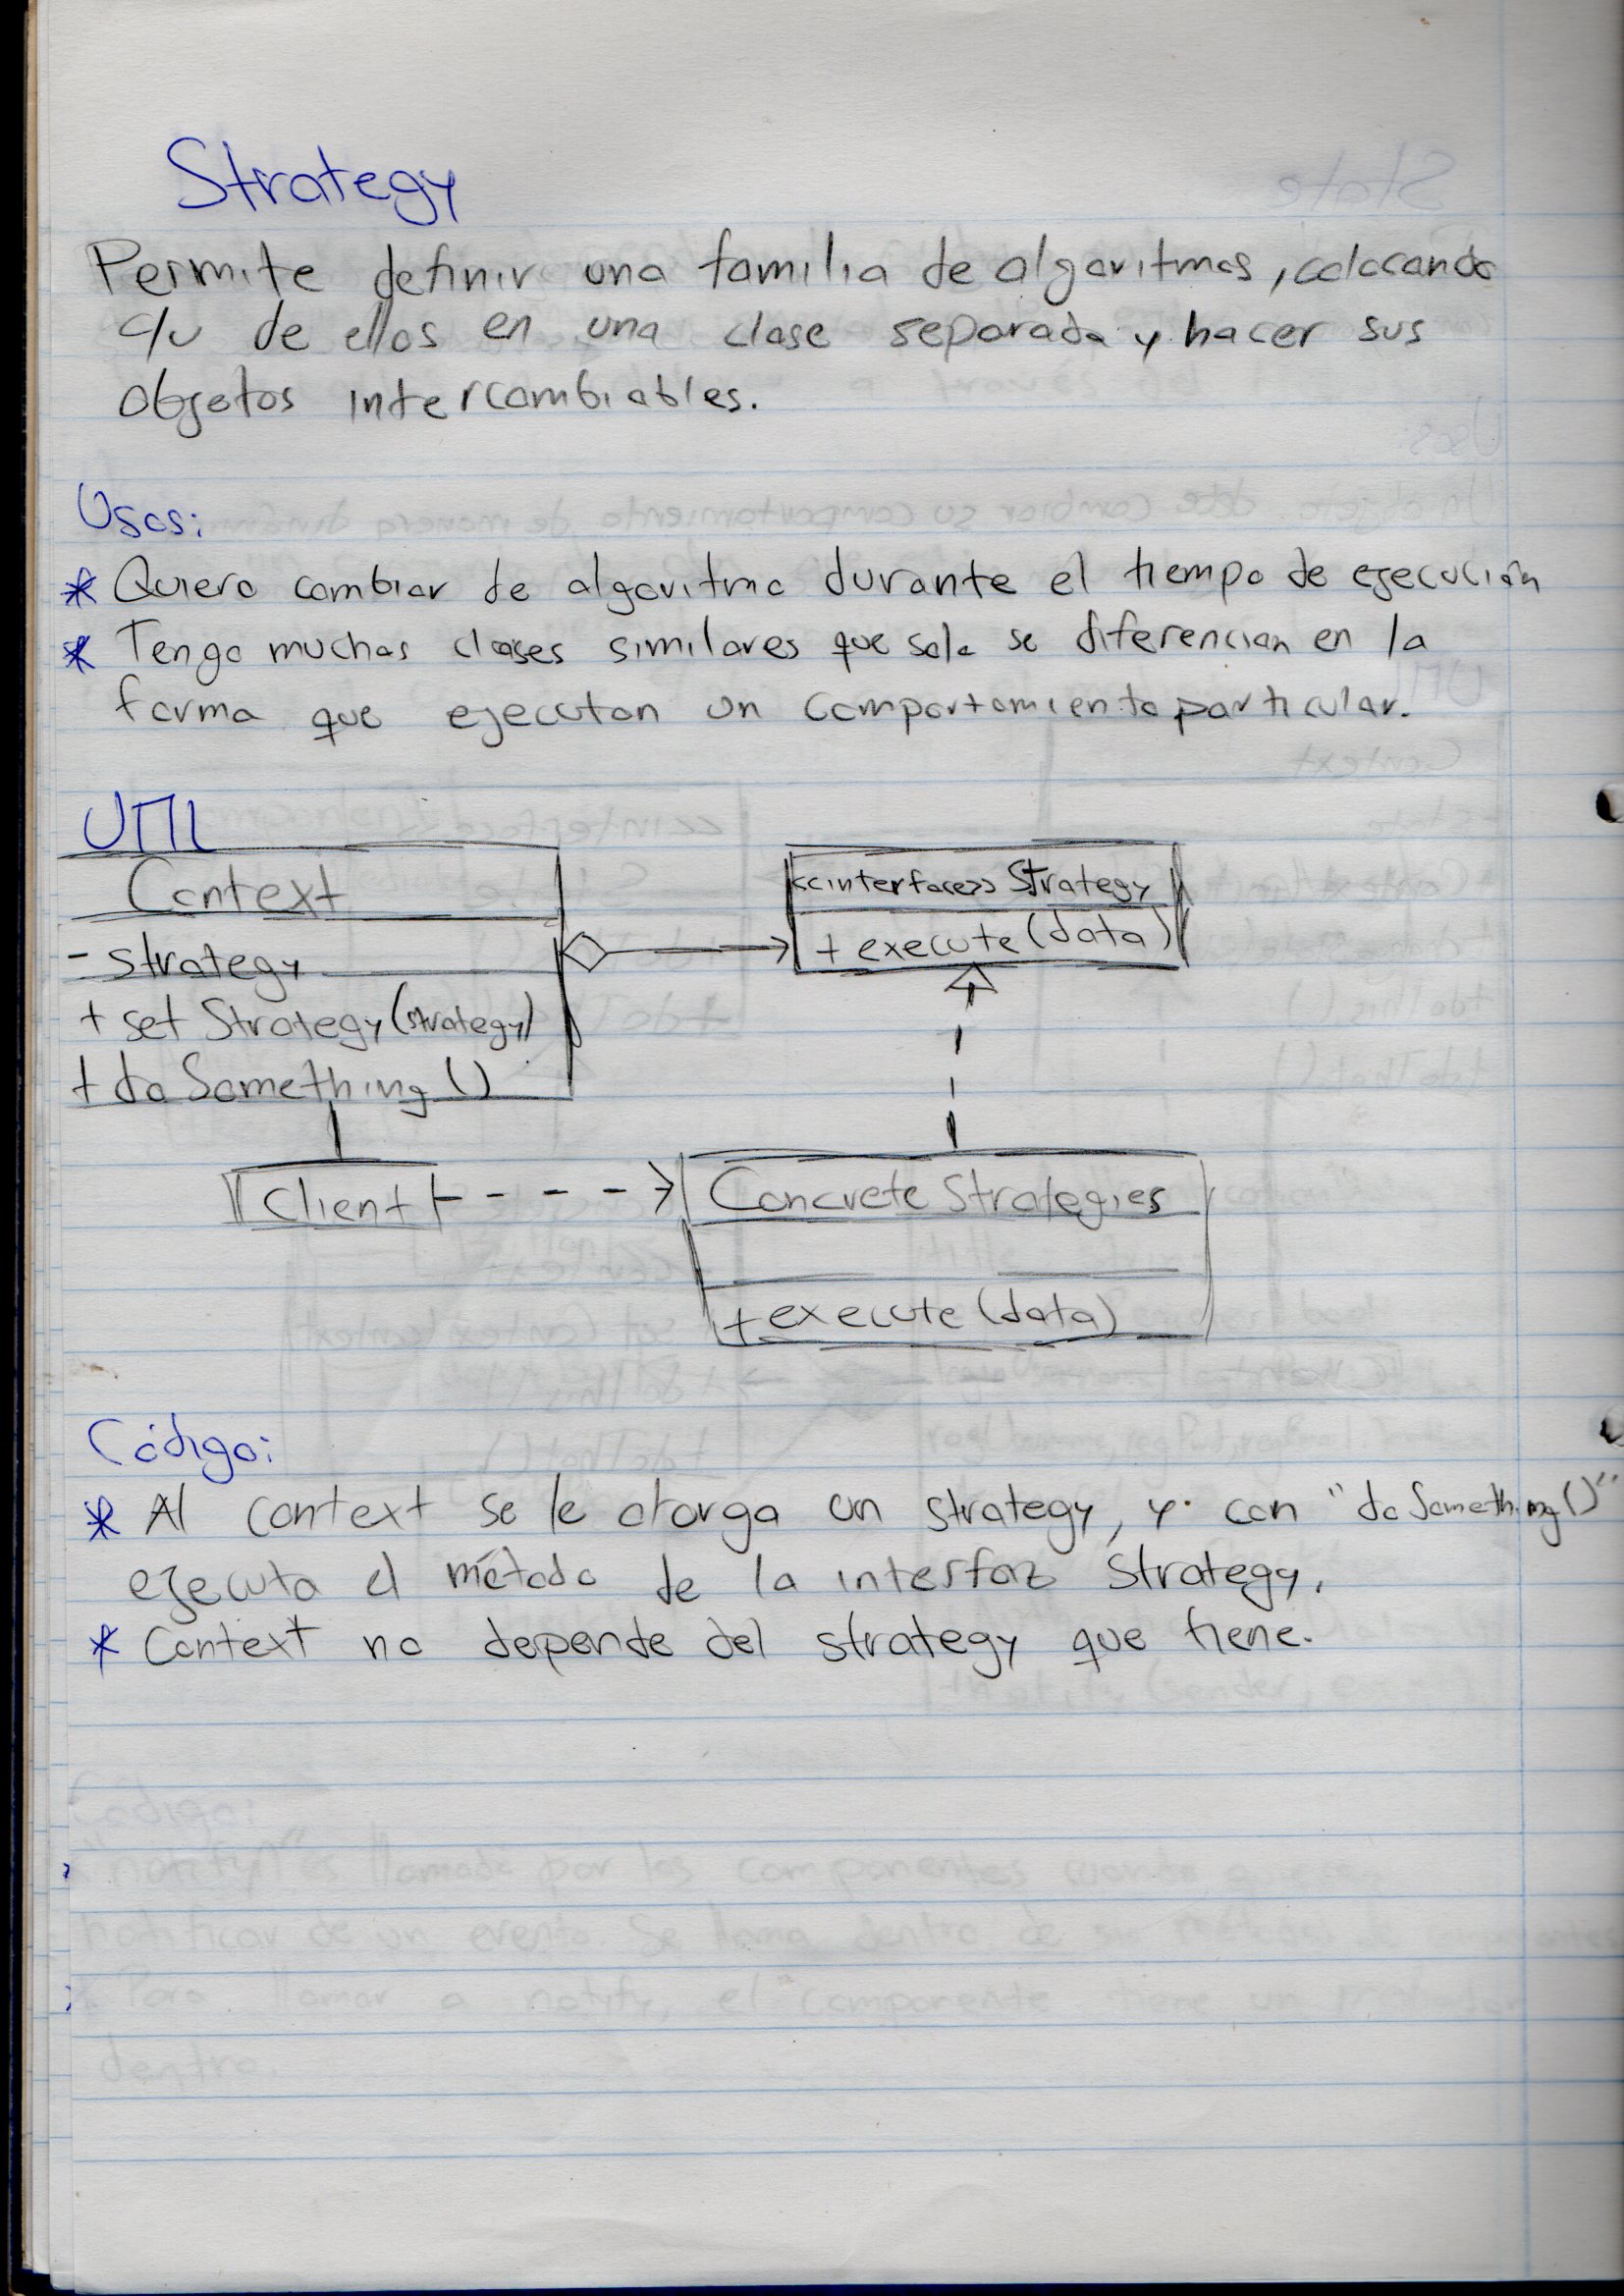 Strategy
Permite definir una familia de algoritmos, colocando
c/u de ellos en una clase separada y hacer sus
objetos intercambiables.
Usos:
* Quiero cambiar de algoritmo durante el tiempo de ejecución
* Tengo muchas clases similares que solo se diferencian en la
forma que ejecutan un comportamiento particular.
UML
Context
- strategy
+ set Strategy(strategy)
+ do Something()
<<interface>> Strategy
+ execute(data)
Client
Concrete Strategies
+ execute(data)
Código:
* Al context se le otorga un strategy, y con "do Something()"
ejecuta el método de la interfaz Strategy.
* Context no depende del strategy que tiene.